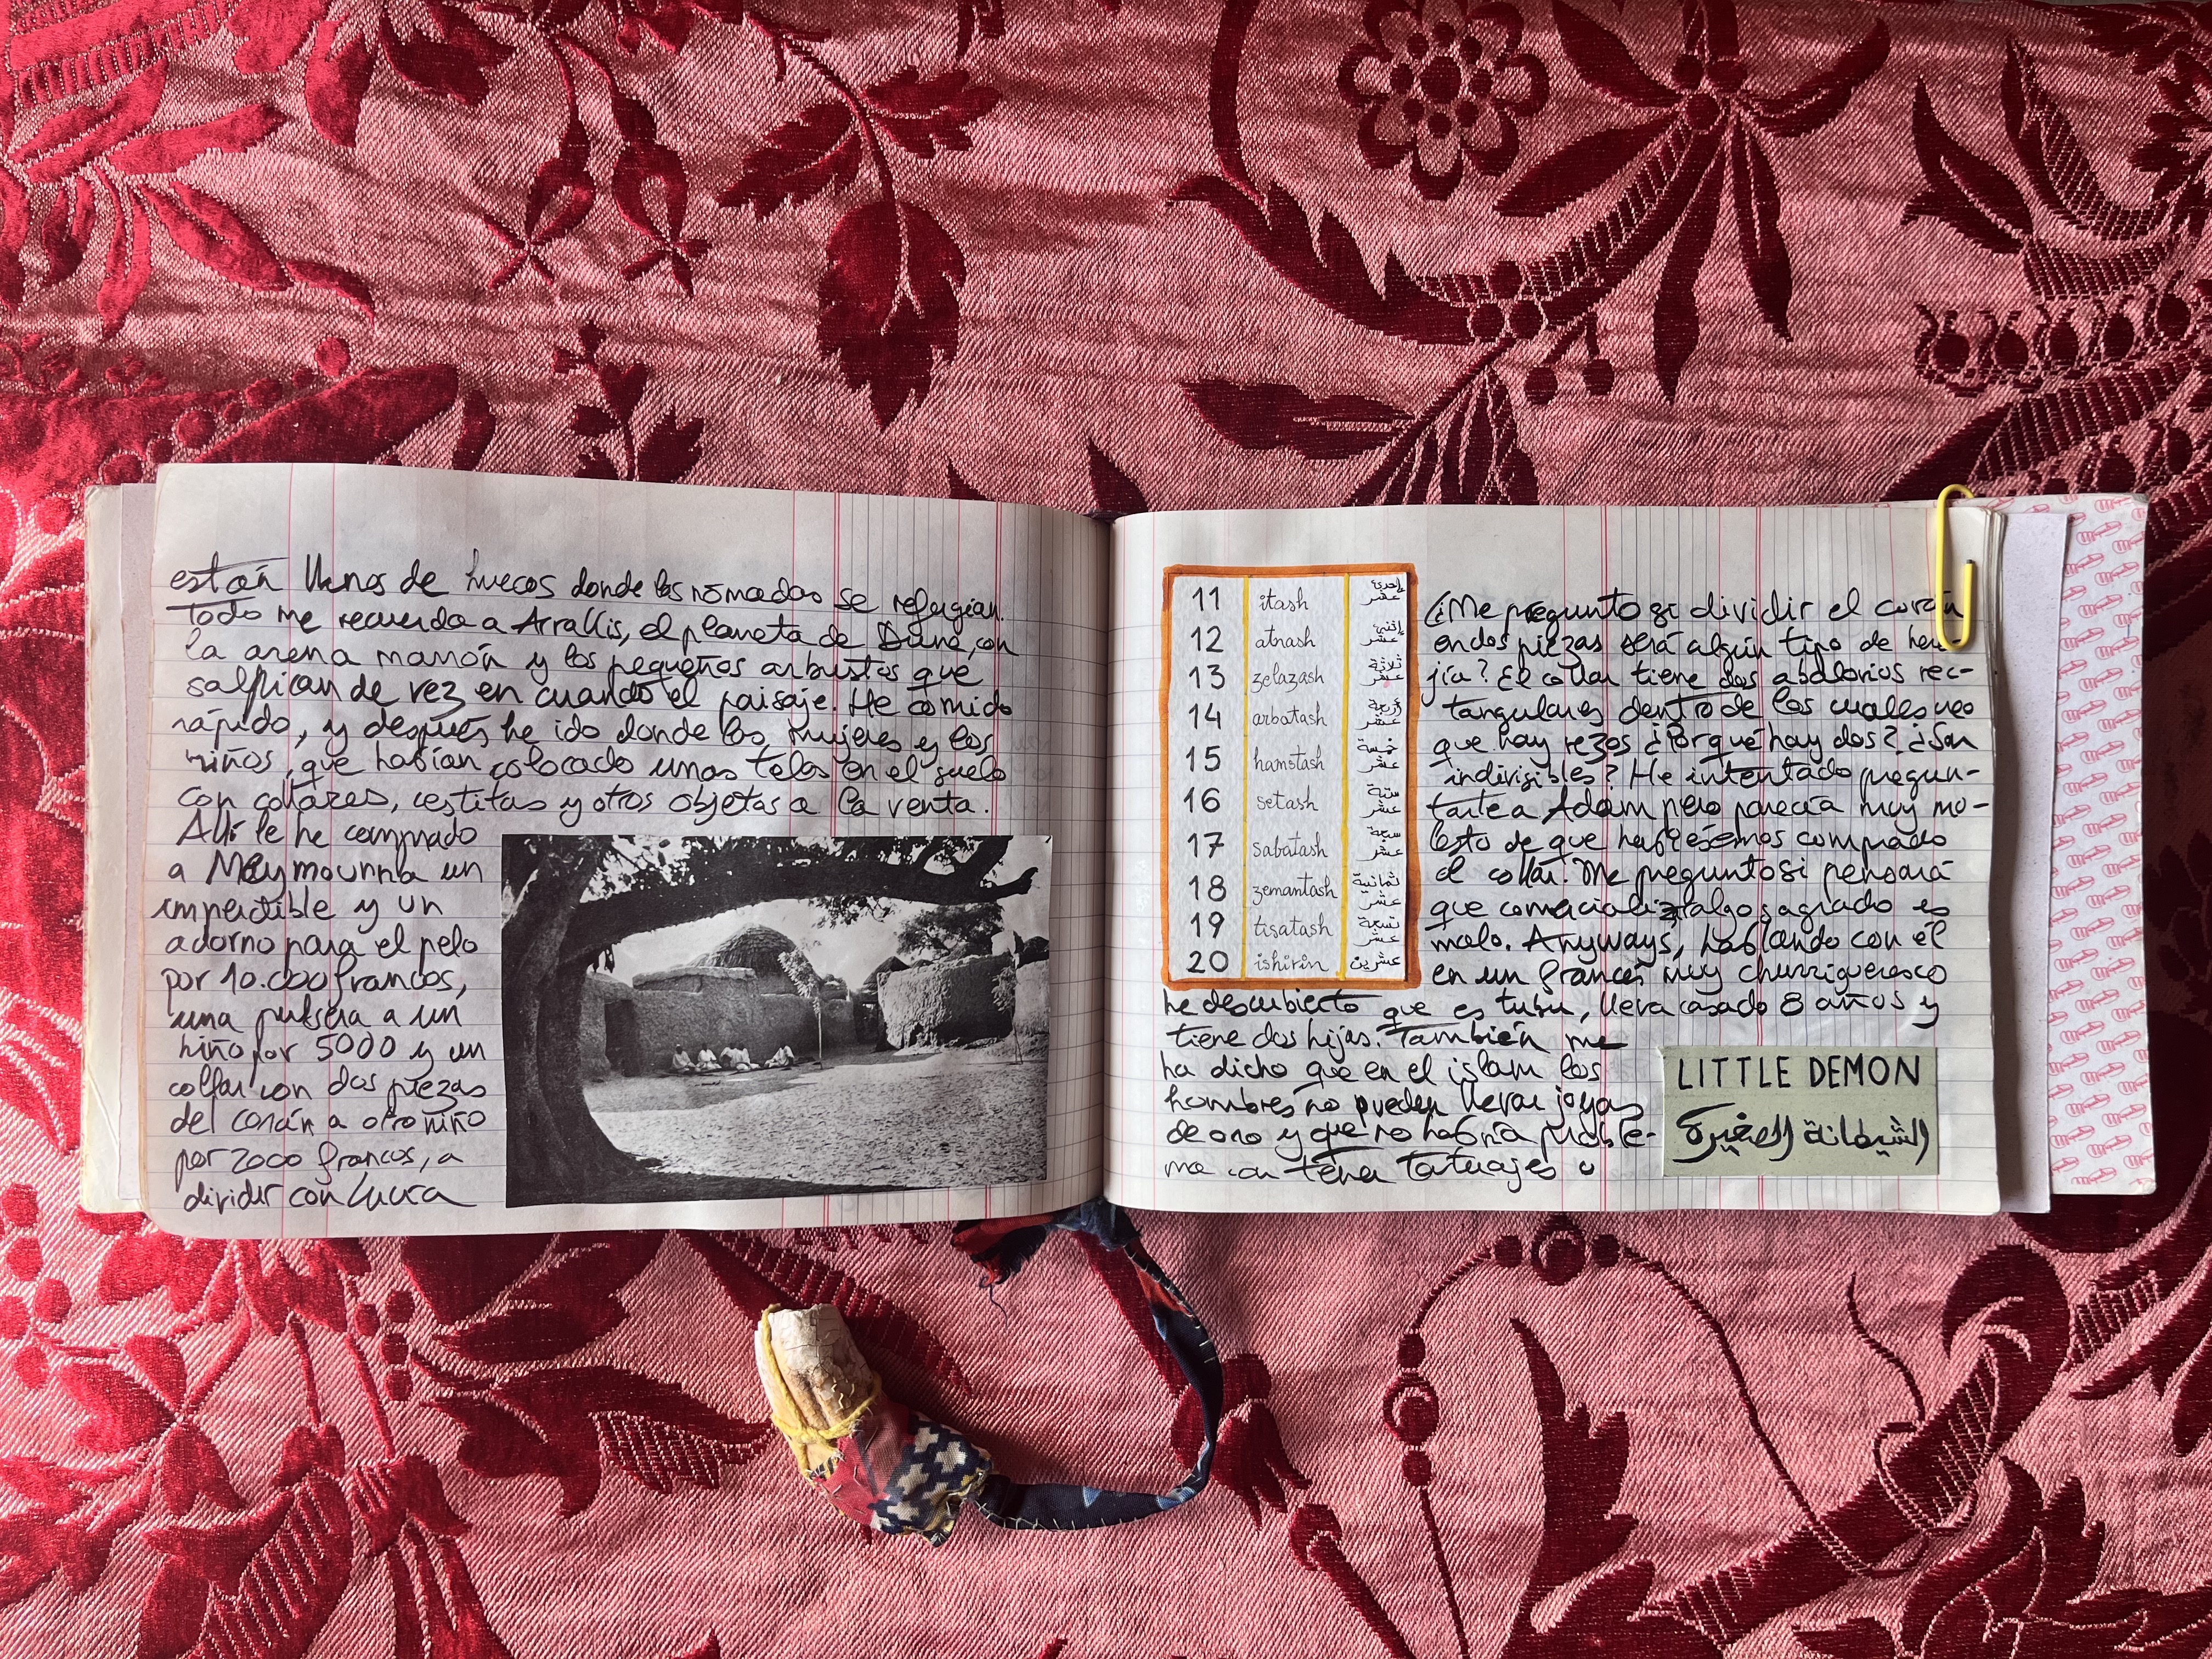 están llenos de huecos donde los nómadas se refugian.
Todo me recuerda a Arrakis, el planeta de Dune, con
la arena marrón y los pequeños arbustos que
salpican de vez en cuando el paisaje. He comido
rápido, y después he ido donde las mujeres y los
niños, que habían colocado unas telas en el suelo
con collares, cestitas y otros objetos a la venta.
Allí le he comprado
a Meymounna un
imperdible y un
adorno para el pelo
por 10.000 francos,
una pulsera a un
niño por 5000 y un
collar con dos piezas
del corán a otro niño
por 2000 francos, a
dividir con Lucía
11 itash إحدى عشر
12 atnash إثني عشر
13 zelazash ثلاثة عشر
14 arbatash أربعة عشر
15 hamstash خمسة عشر
16 setash ستة عشر
17 sabatash سبعة عشر
18 zemantash ثمانية عشر
19 tisatash تسعة عشر
20 ishirin عشرين
(¿Me pregunto si dividir el corán
en dos piezas será algún tipo de here-
jía? El collar tiene dos abalorios rec-
tangulares dentro de los cuales veo
que hay rezos ¿Por qué hay dos? ¿Son
indivisibles? He intentado pregun-
tarle a Adam pero parecía muy mo-
lesto de que hubiésemos comprado
el collar. Me pregunto si pensará
que comercializar algo sagrado es
malo. Anyways, hablando con él
en un francés muy churrigueresco
he descubierto que es tubu, lleva casado 8 años y
tiene dos hijas. También me
ha dicho que en el islam los
hombres no pueden llevar joyas
de oro y que no habría proble-
ma con tener tatuajes o
LITTLE DEMON
الشيطانة الصغيرة